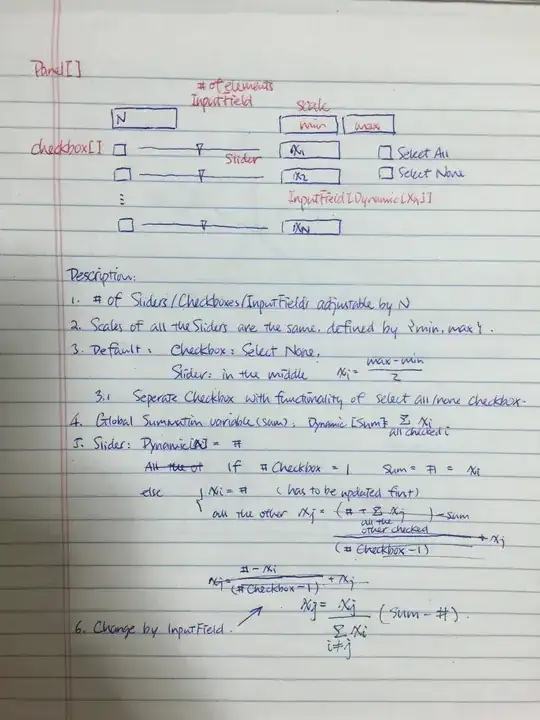 Panel[]
# of elements
InputField
scale
N
min
max
checkbox[]
Slider
x₁
Select All
x₂
Select None
⋮
InputField[Dynamic[Xn]]
x_N
Description:
1. # of Sliders/Checkboxes/InputFields adjustable by N
2. Scales of all the Sliders are the same, defined by {min, max}.
3. Default: Checkbox: Select None,
Slider: in the middle xᵢ = (max-min)/2
3.1 Seperate Checkbox with functionality of select all/none checkbox.
4. Global Summation variable (sum), Dynamic[Sum] = Σ xᵢ
all checked i
5. Slider: Dynamic[x] = #
All the of if # Checkbox = 1 Sum = # = xᵢ
else { xᵢ = # (has to be updated first)
all the other xⱼ = ((# + Σ xⱼ) - sum)/(# Checkbox - 1) + xⱼ
all the
other checked
xⱼ = (# - xᵢ)/(# Checkbox - 1) + xⱼ
xⱼ = xⱼ/(Σ xᵢ) (Sum - #).
i≠j
6. Change by InputField.